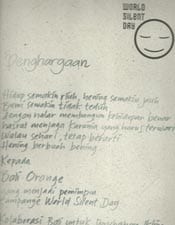 WORLD
SILENT
DAY
Penghargaan
Hidup semakin riuh, hening semakin jauh
Bumi semakin tidak teduh
Dengan nalar membangun kehidupan benar
hasrat menjaga karunia yang harus terwaris
Walau sehari, tetap berarti
Hening berbuah bening
Kepada
Dari Orange
yang menjadi pemimpin
kampanye World Silent Day
Kolaborasi Bali untuk